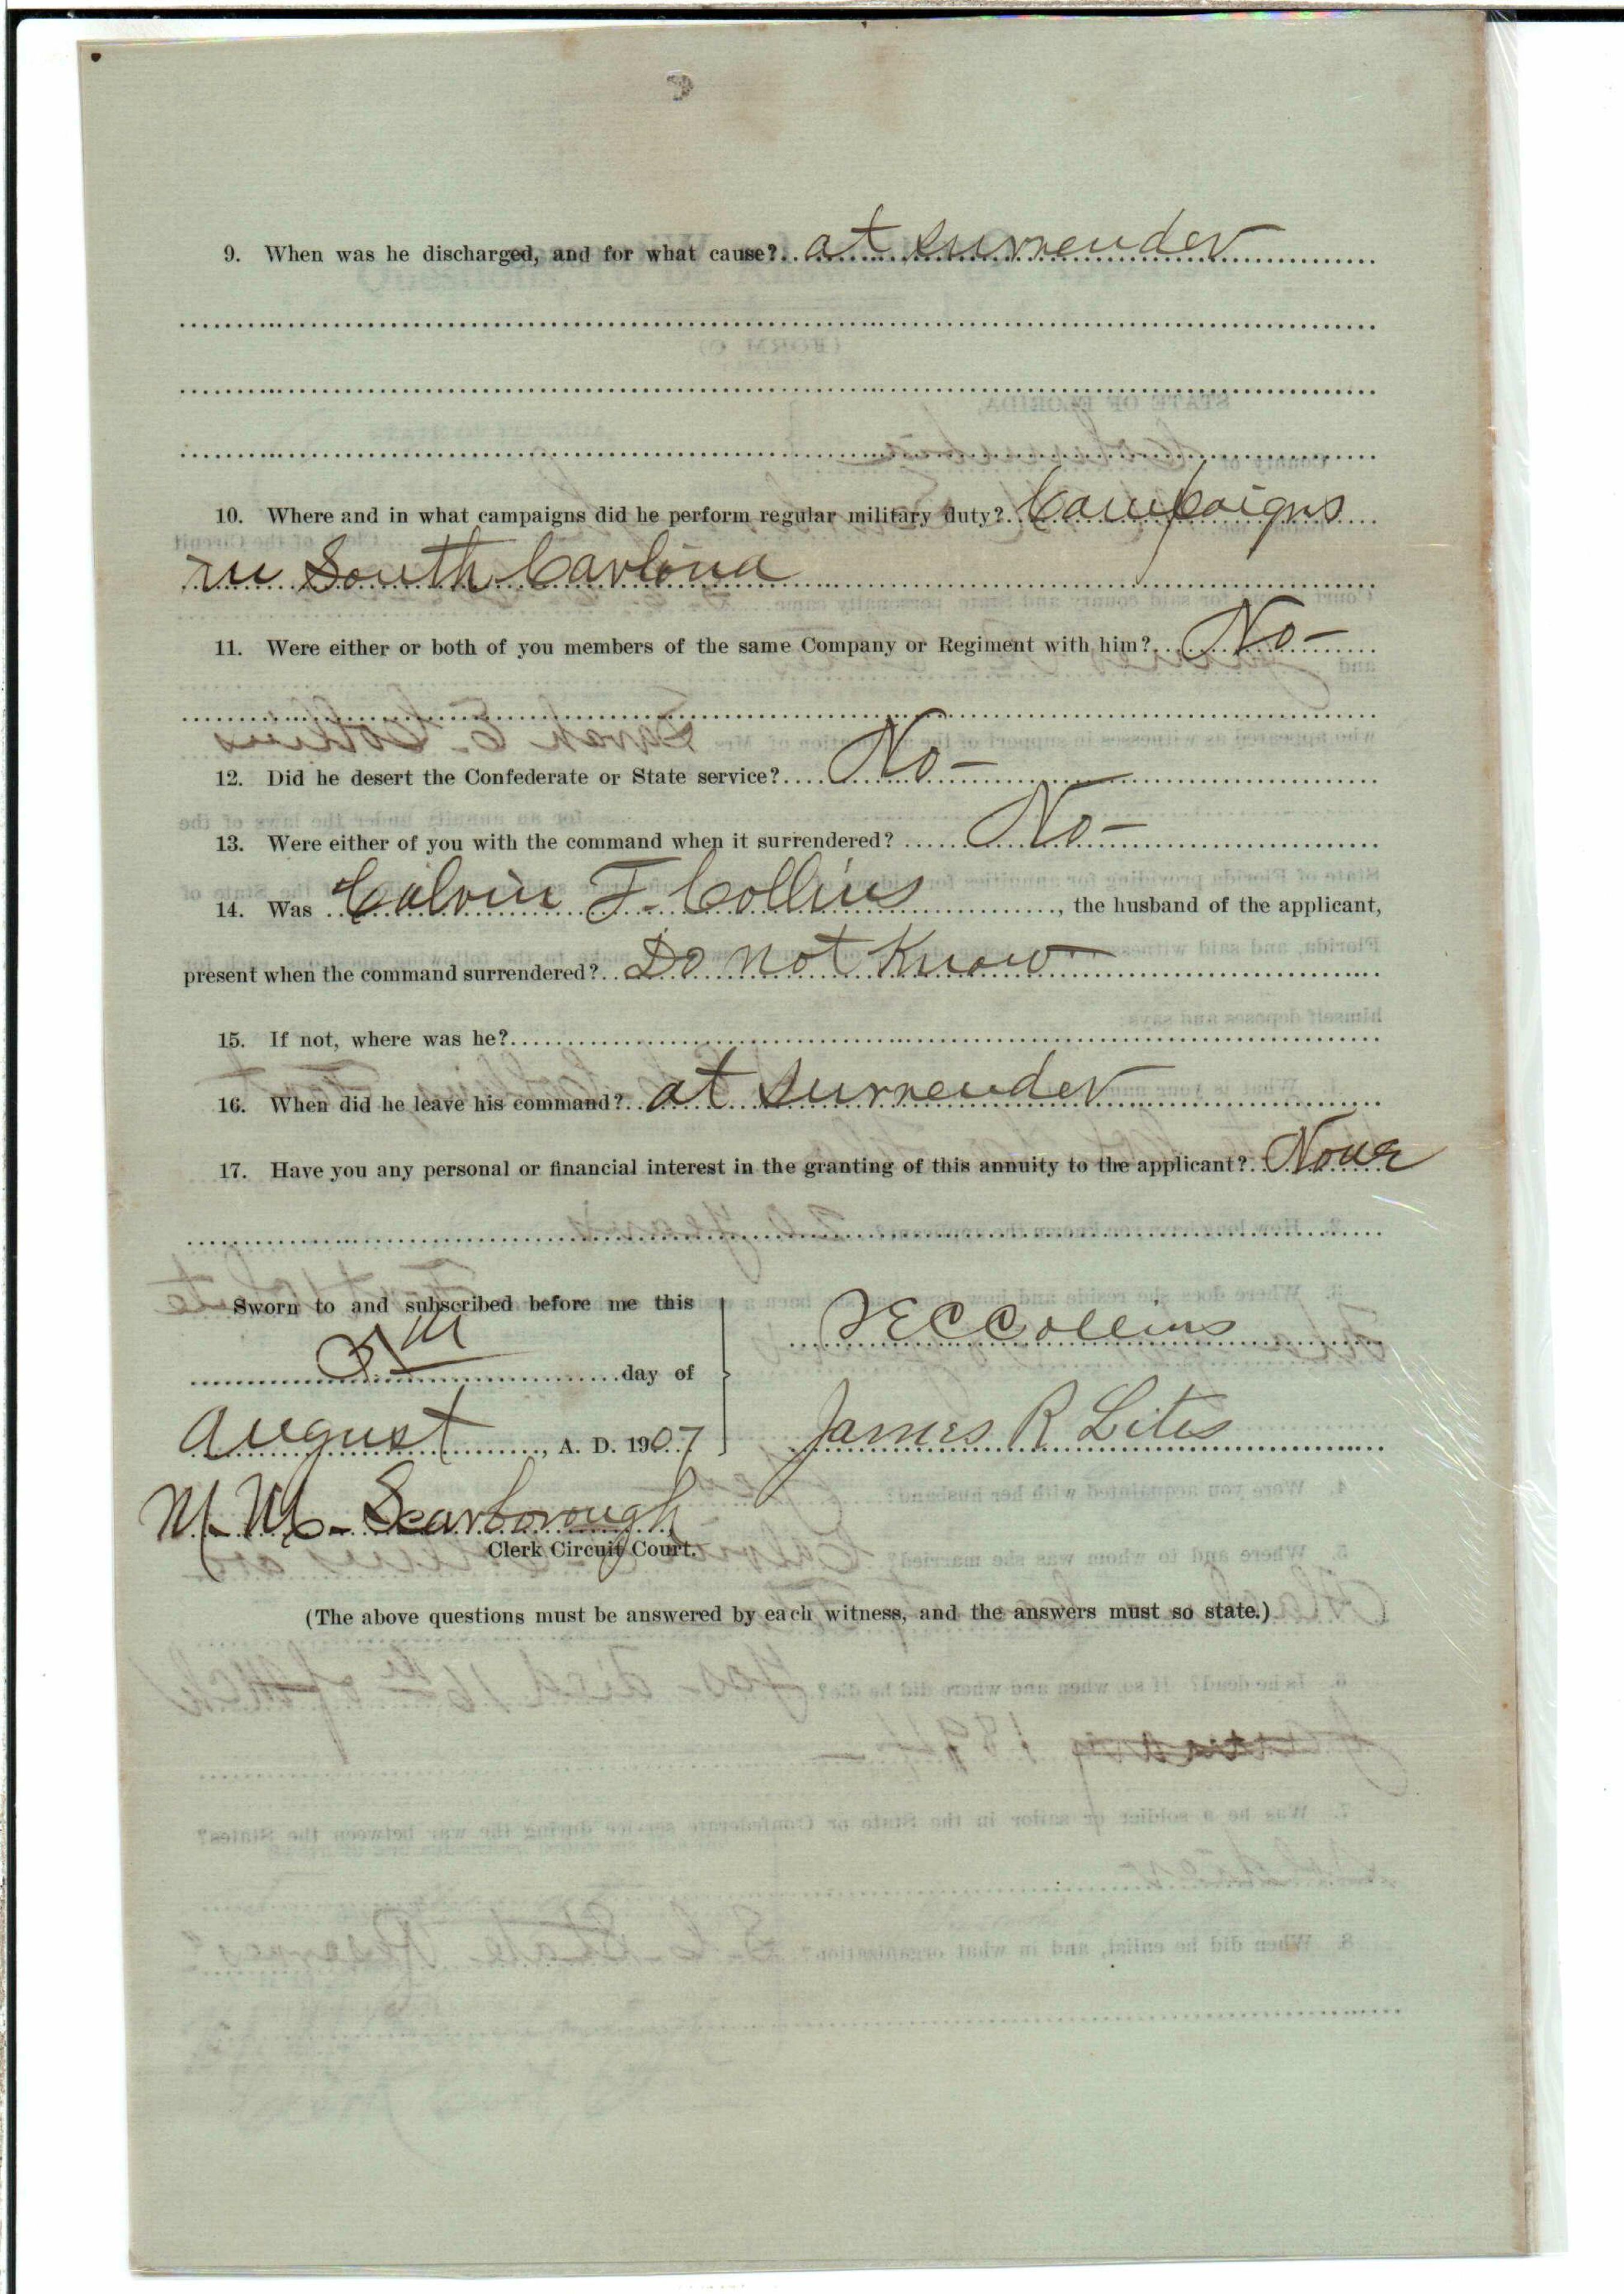 9. When was he discharged, and for what cause? at surrender
10. Where and in what campaigns did he perform regular military duty? Campaigns
in South Carlina
11. Were either or both of you members of the same Company or Regiment with him? No-
12. Did he desert the Confederate or State service? No-
13. Were either of you with the command when it surrendered? No-
14. Was Calvin F. Collins, the husband of the applicant,
present when the command surrendered? Do not Know
15. If not, where was he?
16. When did he leave his command? at surrender
17. Have you any personal or financial interest in the granting of this annuity to the applicant? None
Sworn to and subscribed before me this
day of
August, A. D. 1907
Collins
James R Lites
M. M. Scarborough
Clerk Circuit Court.
(The above questions must be answered by each witness, and the answers must so state.)